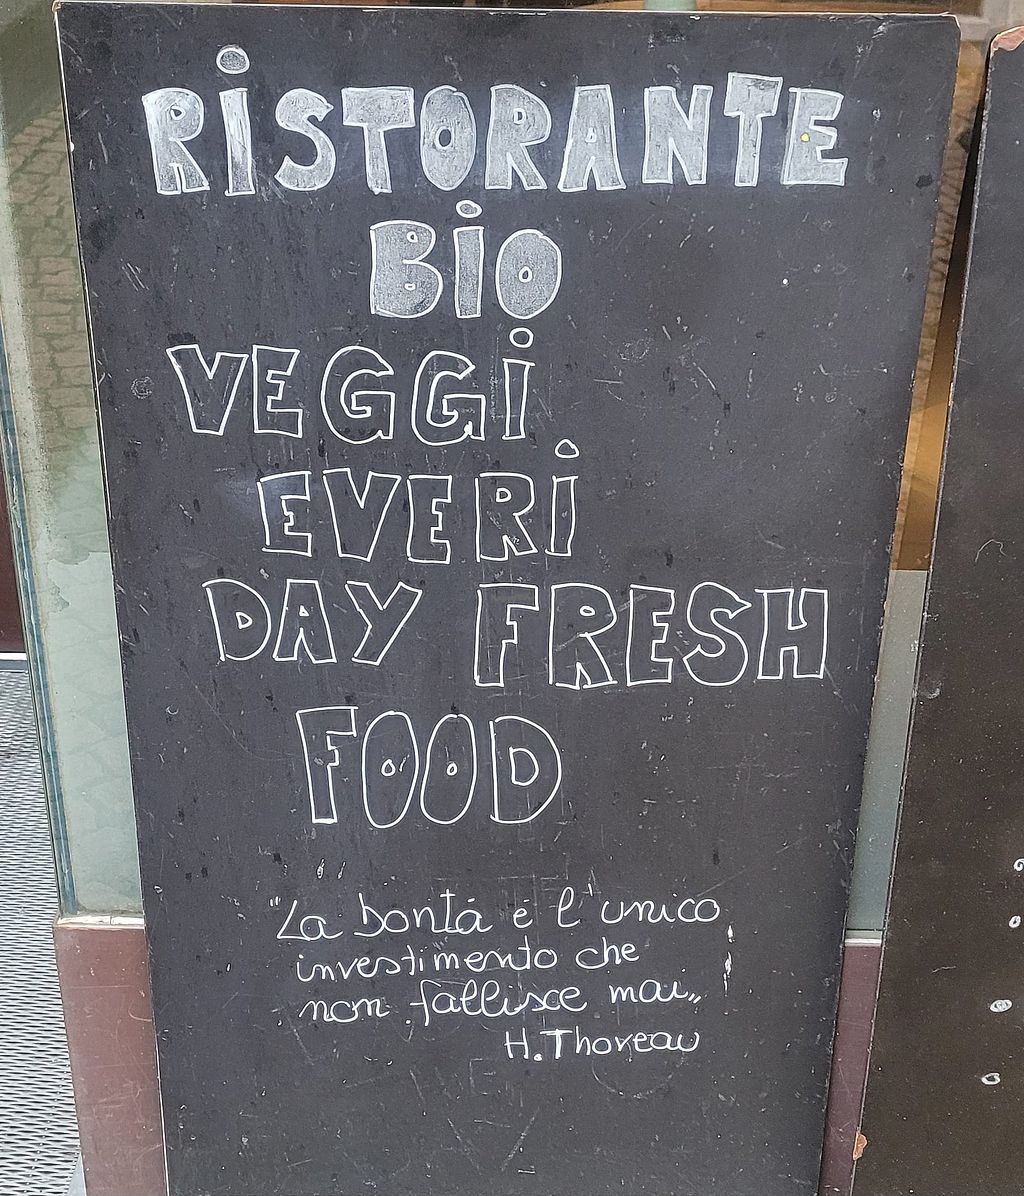 RiSTORANTE
BiO
VEGGi
EVERi
DAY FRESH
FOOD
"La bontá é l'unico
investimento che
non fallisce mai„
H. Thoreau